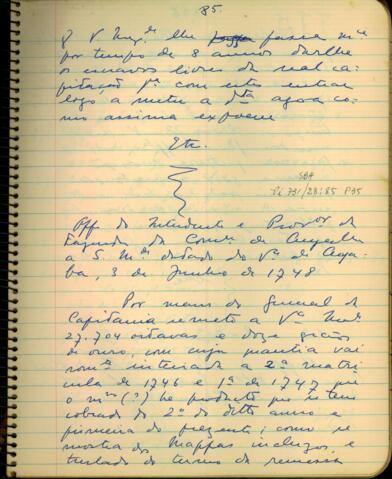 85
q V Mag.de lhe faça m.ce
por tempo de 8 annos darlhe
os escravos livres de real ca-
pitação p.a com estes entrar
logo a meter a d.ta agoa co-
mo assima expoem
Etc.
SBH
Pi 731/28:85 P35
Off do Intendente e Prov.or da
Fazenda da Com.ca de Cuyabá
a S. M.de datado da V.a de Cuya-
ba, 3 de Junho de 1748
Por mano do General da
Capitania remeto a V.a Mad.
27.704 oitavas e doze grãos
de ouro, com cuja quantia vai
inteirada a 2ª matri-
cula de 1746 e 1ª de 1747 que
o m.mo (?) he producto que se tem
cobrado do 2º do ditto anno e
primeira do prezente; como se
mostra dos Mappas incluzos, e
treslado do termo da remessa